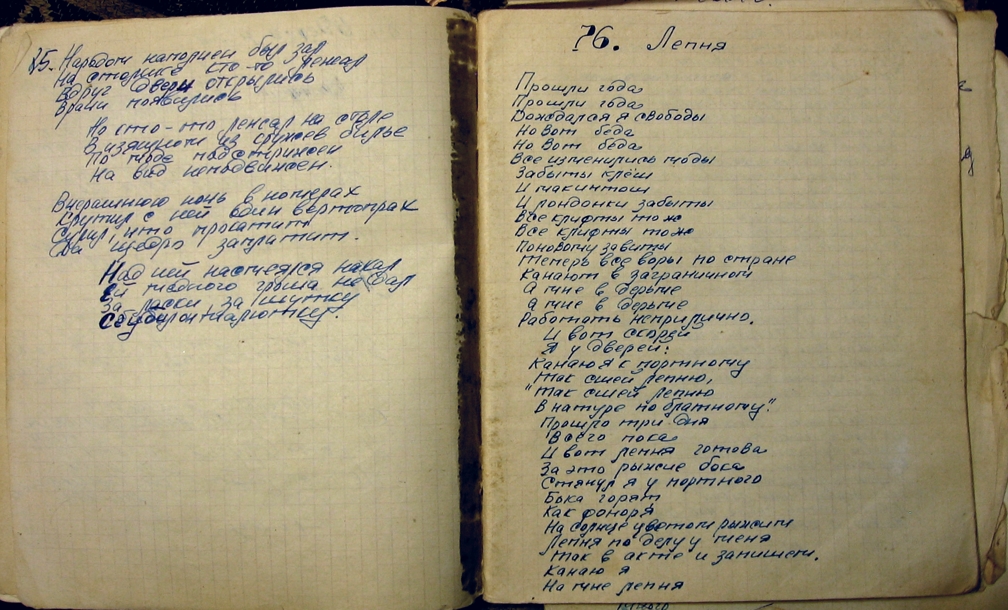 25. Народом наполнен был зал
На столике кто-то плясал
Вдруг двери открылись
Врачи появились
Но кто-то плясал на столе
В изящном из кружев белье
По моде подстрижен
На вид неподвижен.
Вчерашнюю ночь в номерах
Крутил с ней один вертопрах
Сулил, что прокатит
Да щедро заплатит.
Над ней насмеялся нахал
Ей медного гроша не дал
За ласки, за шутку
76. Лепня
Прошли года
Прошли года
Дождался я свободы
Но вот беда
Но Вот беда
Все изменились моды
Забыты клёш
И макинтош
И лондонки забыты
Все клифты то ж
Все клифты то ж
Поновому завиты
Теперь все воры по стране
Канают в заграничном
А мне в дерьме
а мне в дерьме
Работать неприлично.
И вот скорей
Я у дверей:
Канаю я к портному
Так сшей лепню,
"Так сшей лепню
В натуре по блатному".
Прошло три дня
Всего пока
И вот лепня готова
За это рыжие бока
Стянул я у портного
Бока горят
Как фоноря
На солнце цветом рыжим
Лепня по делу у меня
Так в акте и запишем.
Канаю я
На мне лепня